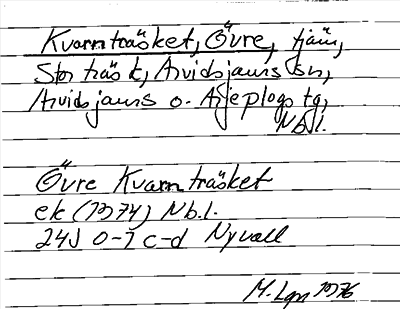 Kvarnträsket, Övre, tjärn,
Storträsk, Arvidsjaurs sn,
Arvidsjaurs o. Arjeplogs tg,
Nb.l.
Övre Kvarnträsket
ek (1974) Nb.l.
24J 0-1 c-d Nyvall
M. Lgn 1976